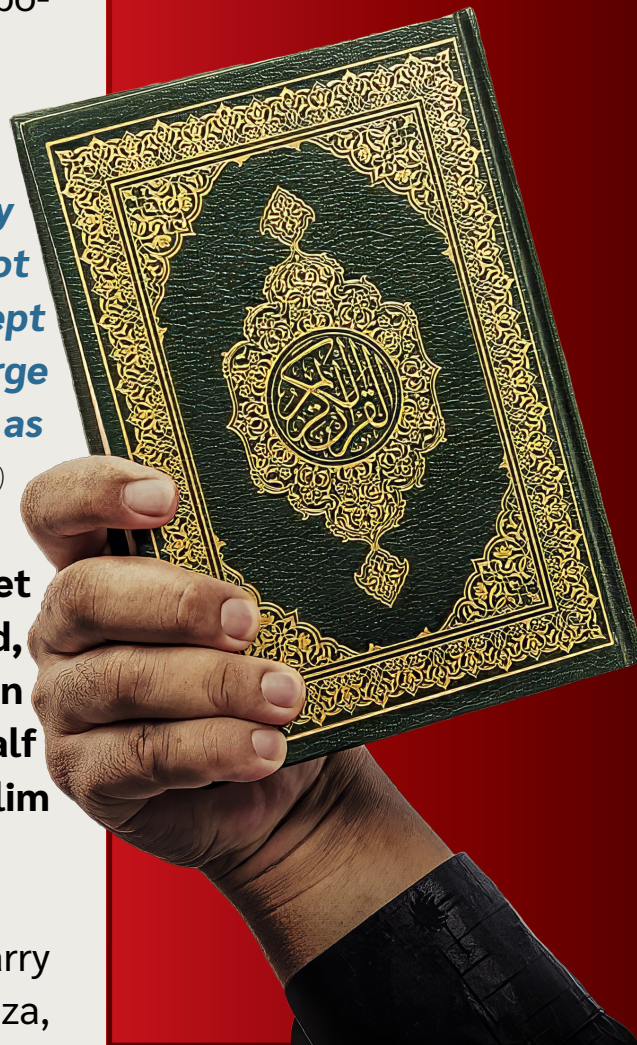 po-
y
ot
ept
rge
as
)
et
d,
n
alf
lim
arry
za,
القرآن الكريم